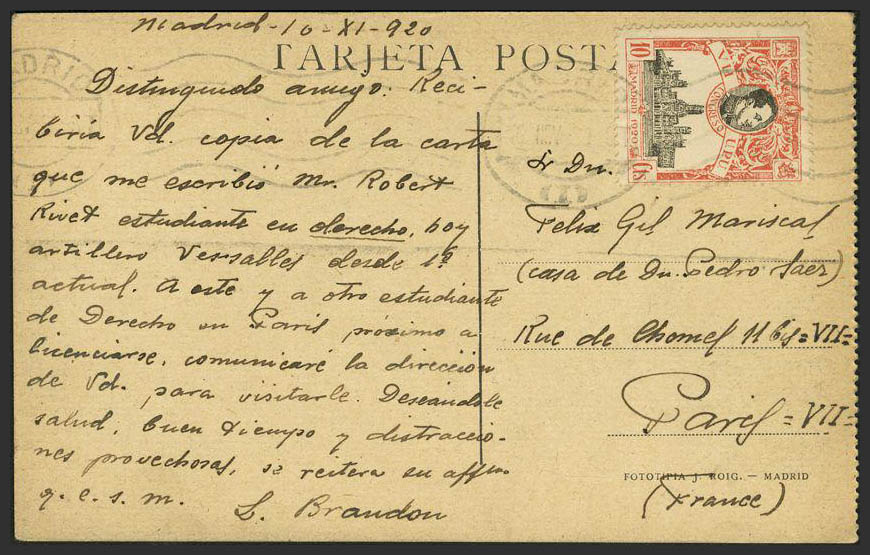 Madrid - 10 - XI - 920
TARJETA POSTA
Distinguido amigo: Reci-
biría Vd. copia de la carta
que me escribió Mr. Robert
Rivet estudiante en derecho, hoy
artillero Versalles desde 1º
actual. A este y a otro estudiante
de Derecho en París próximo a
licenciarse, comunicaré la dirección
de Vd. para visitarle. Deseándole
salud, buen tiempo y distraccio-
nes provechosas, se reitera su affmo
q. e. s. m.
L. Brandon
Sr Dn.
Felix Gil Mariscal
(casa de Dn. Pedro Saez)
Rue de Chomel 11 bis = VII =
Paris = VII =
(France)
FOTOTIPIA J. ROIG. — MADRID
10 Cts
MADRID 1920
VII CONGRESO UPU
MADRID
(1)